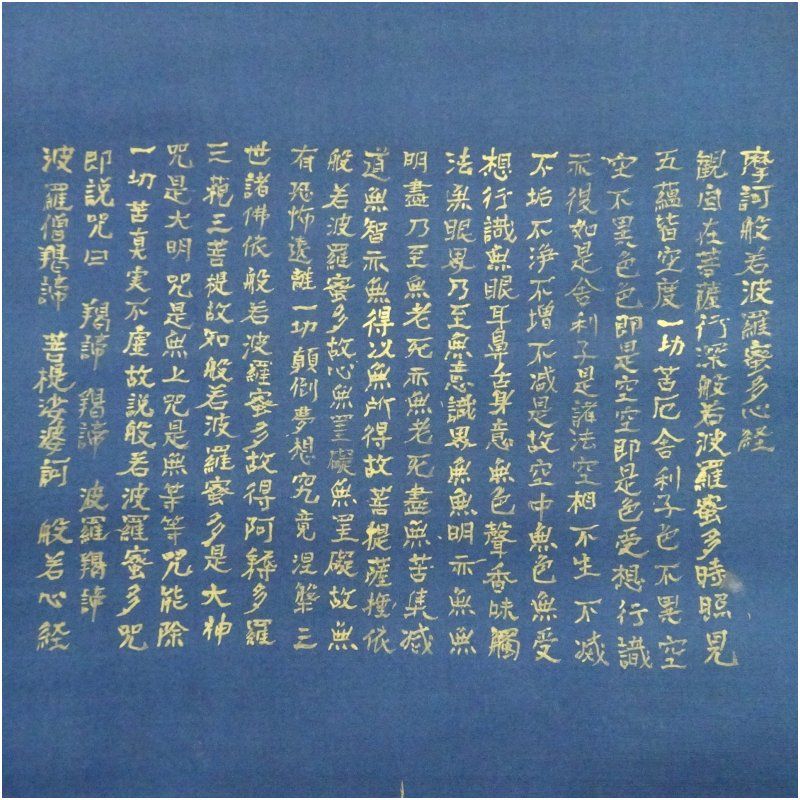 摩訶般若波羅蜜多心経
観自在菩薩行深般若波羅蜜多時照見
五蘊皆空度一切苦厄舎利子色不異空
空不異色色即是空空即是色受想行識
亦復如是舎利子是諸法空相不生不滅
不垢不浄不増不減是故空中無色無受
想行識無眼耳鼻舌身意無色聲香味觸
法無眼界乃至無意識界無無明亦無無
明盡乃至無老死亦無老死盡無苦集滅
道無智亦無得以無所得故菩提薩埵依
般若波羅蜜多故心無罣礙無罣礙故無
有恐怖遠離一切顛倒夢想究竟涅槃三
世諸佛依般若波羅蜜多故得阿耨多羅
三藐三菩提故知般若波羅蜜多是大神
咒是大明咒是無上咒是無等等咒能除
一切苦真実不虚故説般若波羅蜜多咒
即説咒曰 羯諦 羯諦 波羅羯諦
波羅僧羯諦 菩提娑婆訶 般若心経